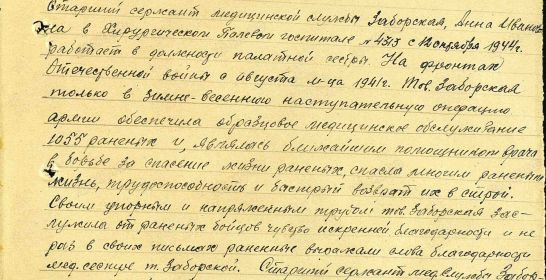 Старший сержант медицинской службы Заборская, Анна Иванов-
на в Хирургическом Полевом госпитале № 4313 с 12 октября 1944г.
работает в должности палатной сестры. На фронтах
Отечественной войны с августа м-ца 1941г. Тов. Заборская
только в зимне-весеннюю наступательную операцию
армии обеспечила образцовое медицинское обслуживание
1055 раненых и, являлась ближайшим помощником врача
в борьбе за спасение жизни раненых, спасла многим раненым
жизнь, трудоспособность и быстрый возврат их в строй.
Своим упорным и напряженным трудом тов. Заборская зас-
лужила от раненых бойцов чувство искренней благодарности и не
раз в своих письмах раненные слова благодарности
мед. сестре т. Заборской. Старший сержант мед. службы Забор-